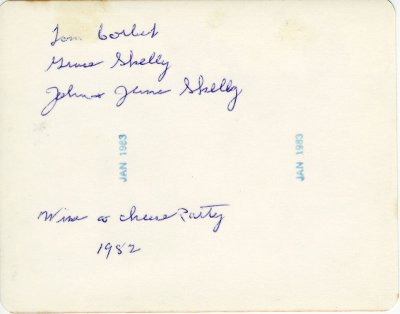 Tom Corbet
Grace Shelly
John & Jeanne Shelly
JAN 1983
JAN 1983
Wine & cheese Party
1982